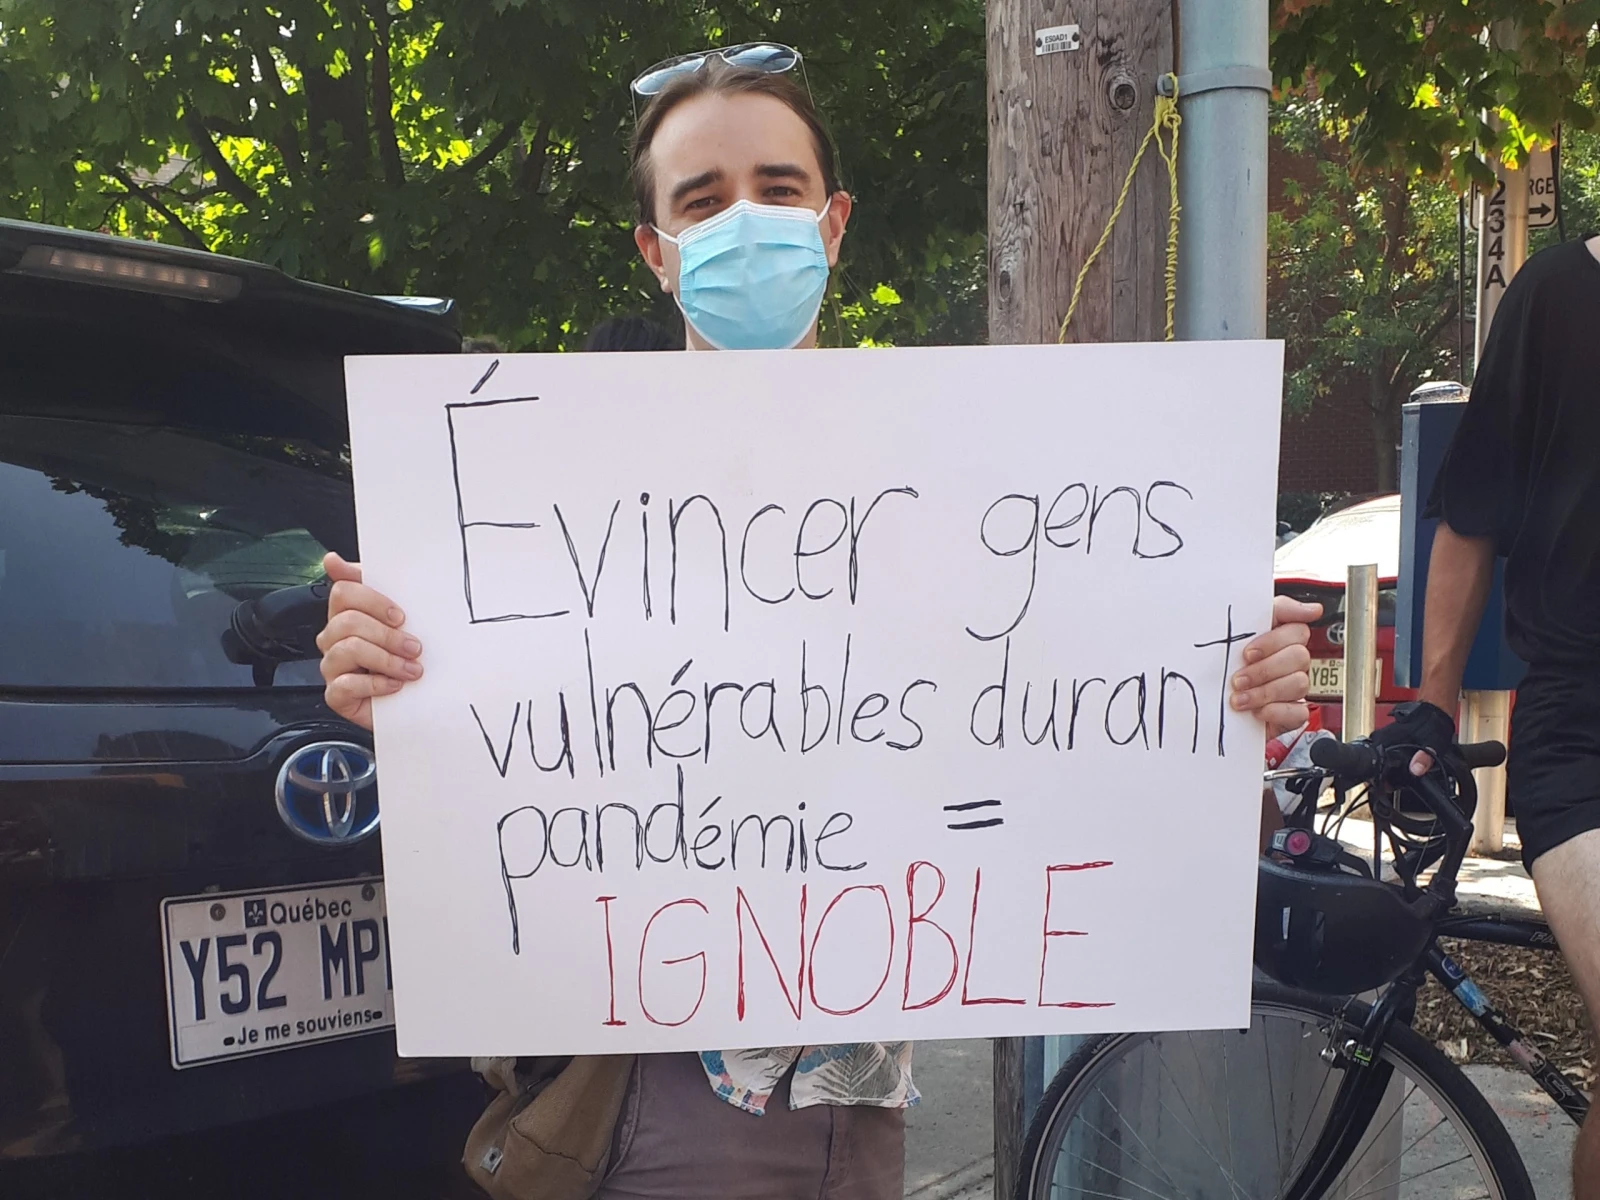 Évincer gens
vulnérables durant
pandémie =
IGNOBLE
Québec
Y52 MP
Je me souviens
E50AD1
234A
Y85